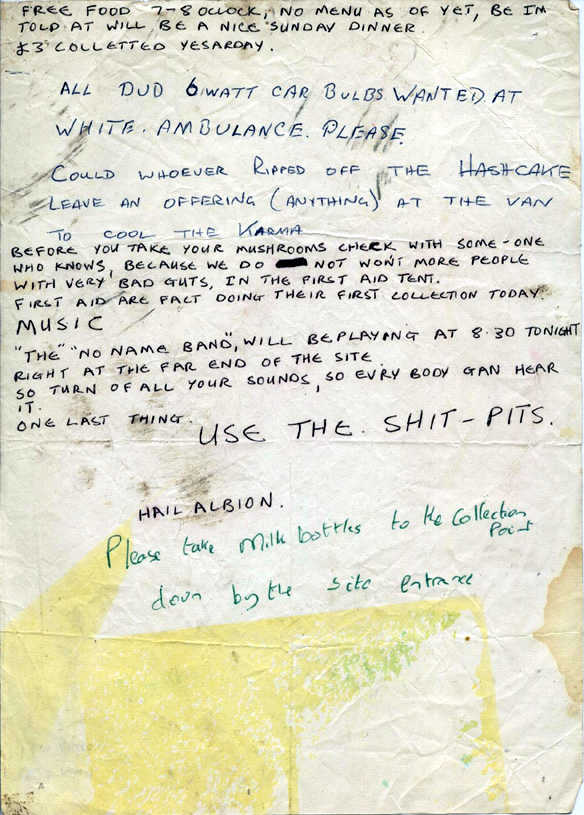 FREE FOOD 7-8 OCLOCK, NO MENU AS OF YET, BE IM
TOLD AT WILL BE A NICE SUNDAY DINNER.
£3 COLLETTED YESARDAY.
ALL DUD 6 WATT CAR BULBS WANTED AT
WHITE. AMBULANCE. PLEASE.
COULD WHOEVER RIPPED OFF THE HASHCAKE
LEAVE AN OFFERING (ANYTHING) AT THE VAN
TO COOL THE KARMA
BEFORE YOU TAKE YOUR MUSHROOMS CHECK WITH SOME-ONE
WHO KNOWS, BECAUSE WE DO NOT WONT MORE PEOPLE
WITH VERY BAD GUTS, IN THE FIRST AID TENT.
FIRST AID ARE FACT DOING THEIR FIRST COLLECTION TODAY.
MUSIC
"THE" "NO NAME BAND", WILL BE PLAYING AT 8.30 TONIGHT
RIGHT AT THE FAR END OF THE SITE.
SO TURN OF ALL YOUR SOUNDS, SO EVRY BODY CAN HEAR
IT.
ONE LAST THING.
USE THE. SHIT-PITS.
HAIL ALBION.
Please take Milk bottles to the Collection
Point
down by the site entrance